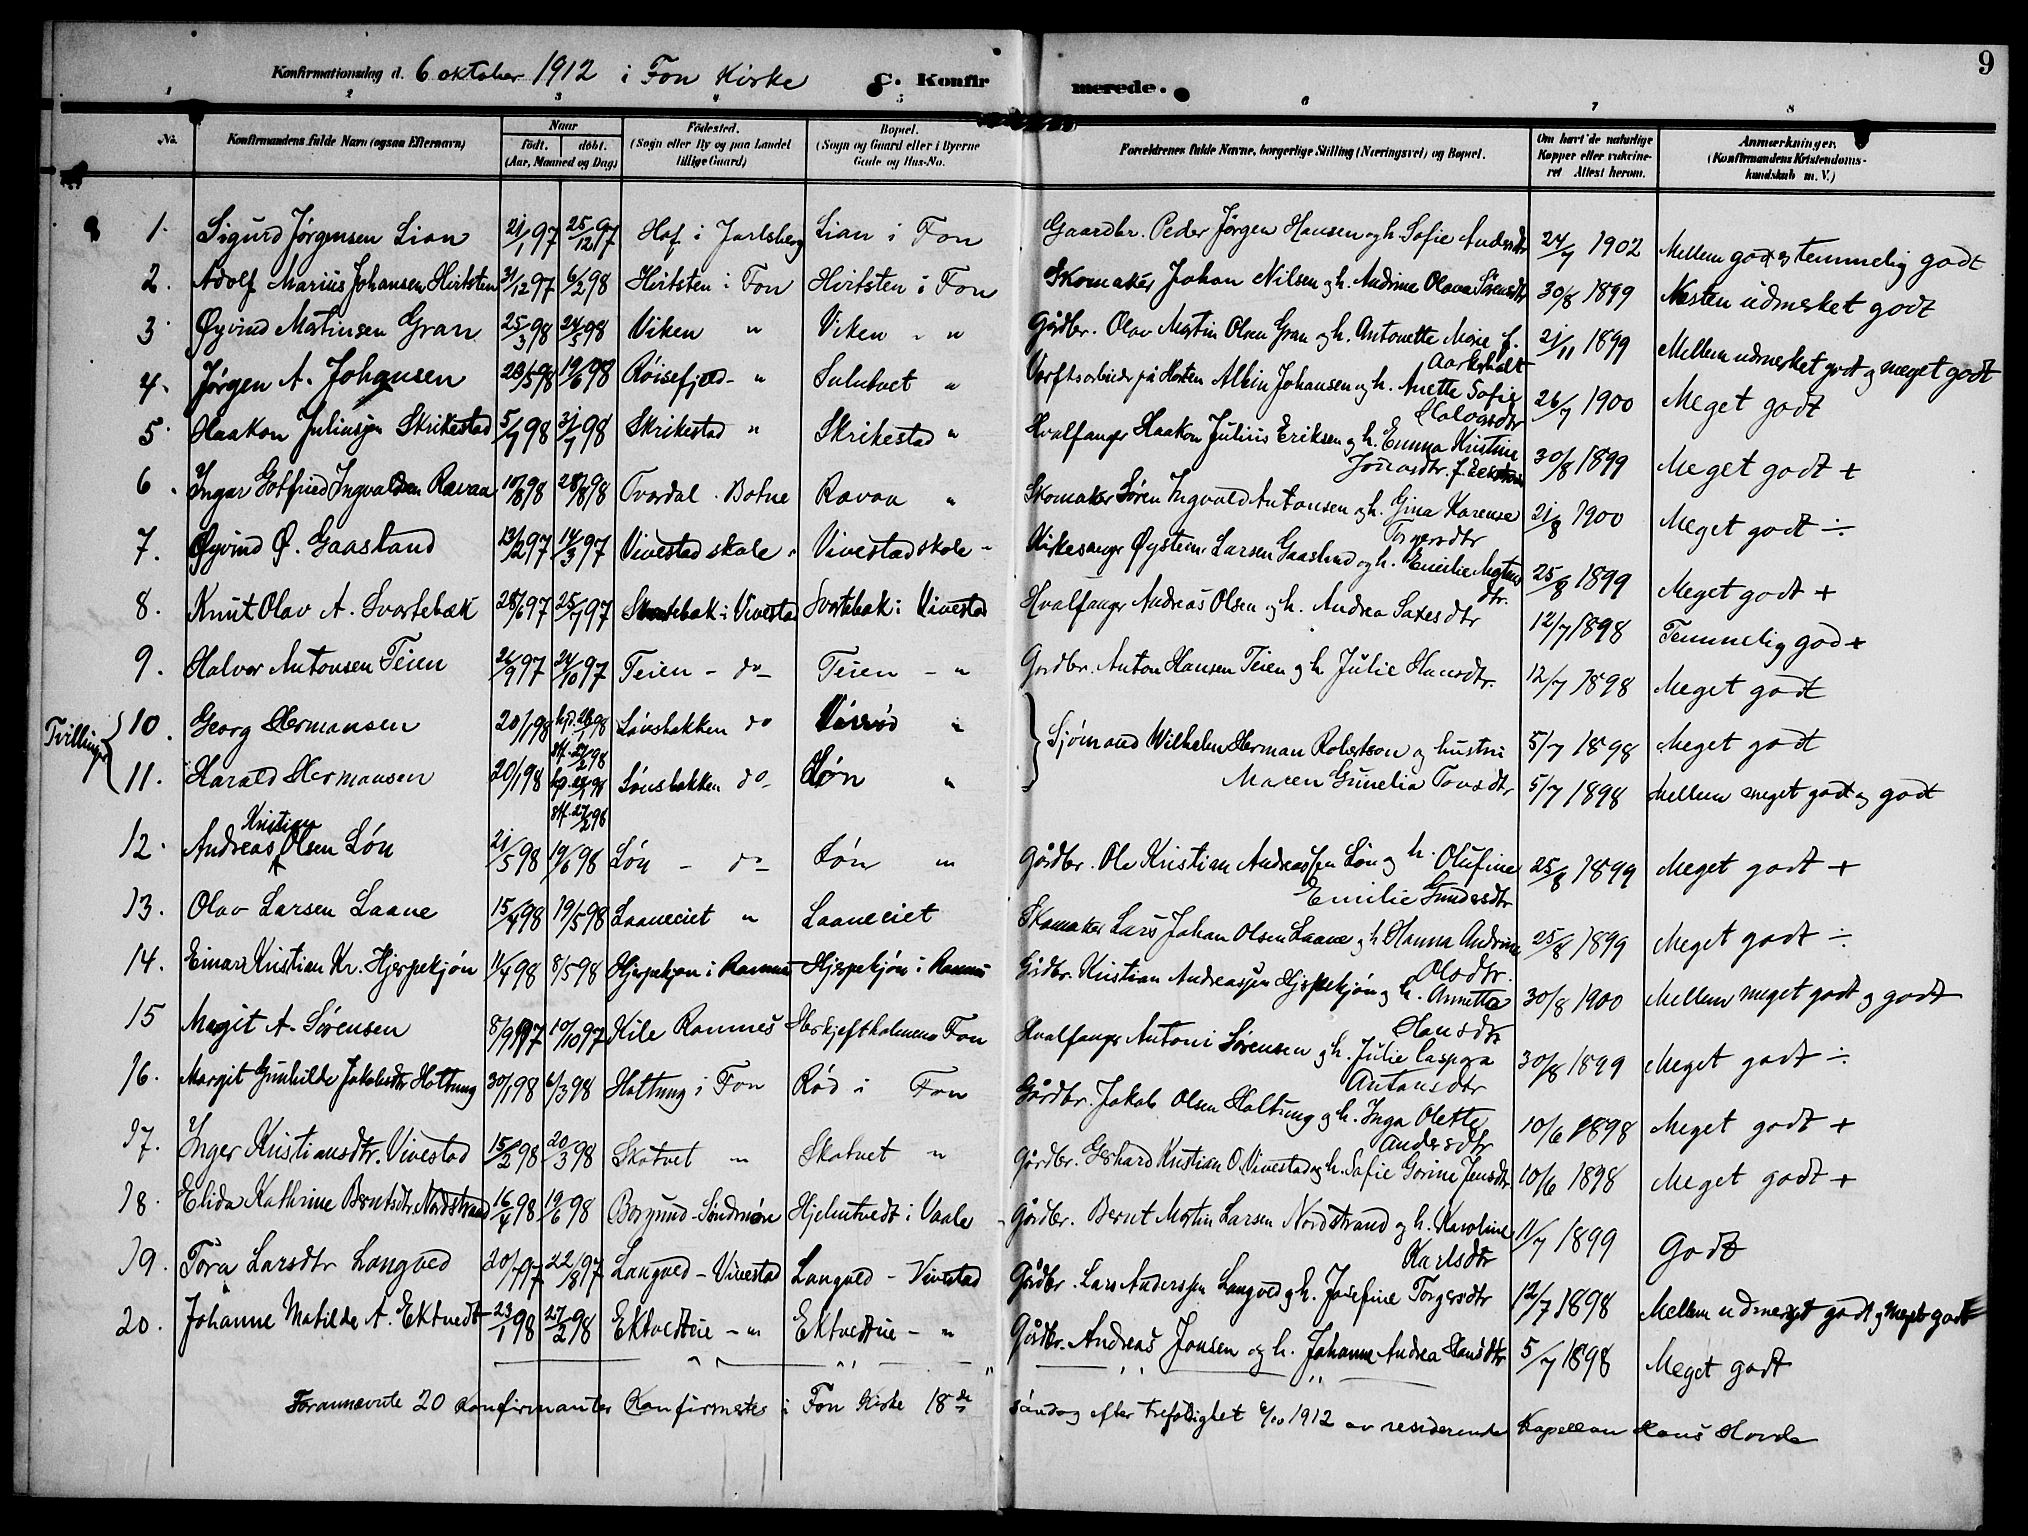 9
Konfirmationsdag d. 6 oktober 1912 i Fon Kirke C. Konfirmerede.
1 2 3 4 5 6 7 8
No. Konfirmandens fulde Navn (ogsaa Efternavn) Naar født. døbt. (Aar, Maaned og Dag) Fødested. (Sogn eller By og paa Landet tillige Gaard) Bopæl. (Sogn og Gaard eller i Byerne Gade og Hus-No. Forældrenes fulde Navne, borgerlige Stilling (Næringsvei) og Bopæl. Om havt de naturlige Kopper eller vakcineret Attest herom. Anmærkninger. (Konfirmandens Kristendomskundskab m. V.)
1. Sigurd Jørgensen Lian 21/1 97 25/12 97 Hof i Jarlsberg Lian i Fon Gaardbr. Peder Jørgen Hansen og h. Sofie Andersdtr 24/7 1902 Mellem godt og temmelig godt
2. Adolf Marius Johansen Hvitsten 31/12 97 6/2 98 Hvitsten i Fon Hvitsten i Fon Skomaker Johan Nilsen og h. Andrine Olava Sørensdtr 30/8 1899 Næsten udmerket godt
3. Øyvind Martinsen Gran 25/3 98 24/5 98 Viken " Viken " " Gårdbr. Olav Martin Olsen Gran og h. Antonette Marie f. Aarholt 21/11 1899 Mellem udmerket godt og meget godt
4. Jørgen A. Johansen 23/5 98 19/6 98 Røisefjeld - " Sulutvet " Verftsarbeider på Horten Albin Johansen og h. Anette Sofie 26/7 1900 Meget godt
5. Haakon Juliusen Skrikestad 5/7 98 31/7 98 Skrikestad " Skrikestad " Hvalfanger Haakon Julius Eriksen og h. Emma Kristine 30/8 1899 Meget godt +
6. Ingar Gotfried Ingvaldsen Ravaa 10/8 98 28/8 98 Tvardal. Botne Ravaa " Skomaker Søren Ingvald Antonsen og h. Gina Karense Torgersdtr 21/8 1900 Meget godt ÷
7. Øyvind Ø. Gaasland 13/2 97 14/3 97 Vivestad skole " Vivestad skole - Kirkesanger Øystein Larsen Gaasland og h. Emilie Mortensdtr. 25/8 1899 Meget godt +
8. Knut Olav A. Svartebæk 28/6 97 25/7 97 Svartebæk i Vivestad Svartebæk i Vivestad Hvalfanger Andreas Olsen og h. Andrea Saxesdtr 12/7 1898 Temmelig god +
9. Halvor Antonsen Teien 21/9 97 24/10 97 Teien - do - Teien - " Gardbr. Anton Hansen Teien og h. Julie Hansdtr. 12/7 1898 Meget godt
Tvillinger
10. Georg Hermansen 20/1 98 Lønsbakken do " Sjømand Wilhelm Herman Robertson og hustru 5/7 1898 Meget godt
11. Harald Hermansen 20/1 98 Lønsbakken do - Løn " Maren Gunelia Tovsdtr 5/7 1898 Mellem meget godt og godt
12. Andreas Kristian Olsen Løn 21/5 98 19/6 98 Løn - do - Løn " Gårdbr. Ole Kristian Andreassen Løn og h. Olufine Emilie Gundersdtr 25/8 1899 Meget godt +
13. Olav Larsen Laane 15/4 98 19/5 98 Laaneeiet " Laaneeiet Skomaker Lars Johan Olsen Laane og h Hanna Andrine Olsdtr 25/8 1899 Meget godt ÷
14. Einar Kristian Kr. Hjerpekjøn 11/4 98 8/5 98 Hjerpekjøn i Ramnes Hjerpekjøn i Ramnes Gårdbr. Kristian Andreassen Hjerpekjøn og h. Annette Hansdtr 30/8 1900 Mellem meget godt og godt
15 Margit A. Sørensen 8/9 97 10/10 97 Kile Ramnes Herkjeftholmene Fon Hvalfanger Antoni Sørensen og h. Julie Caspara Antonsdtr 30/8 1899 Meget godt ÷
16. Margit Gunhilde Jakobsdtr Holtung 30/1 98 6/3 98 Holtung i Fon Rød i Fon Gårdbr. Jakob Olsen Holtung og h. Inga Olette Andersdtr 10/6 1898 Meget godt +
17. Inger Kristiansdtr. Vivestad 15/2 98 20/3 98 Skatvet " Skatvet " Gårdbr. Gerhard Kristian O. Vivestad og h. Sofie Gorine Jensdtr 10/6 1898 Meget godt +
18. Elida Kathrine Berntsdtr Nordstrand 16/4 98 19/6 98 Borgund - Søndmøre Hjelmtvedt i Vaale Gårdbr. Bernt Martin Larsen Nordstrand og h. Karoline Karlsdtr 11/7 1899 Godt
19. Tora Larsdtr Langved 20/7 97 22/8 97 Langved - Vivestad Langved - Vivestad Gårdbr. Lars Anderssen Langved og h. Josefine Torgersdtr 12/7 1898 Mellem udmerket godt og meget godt
20. Johanne Matilde A. Ektvedt 23/1 98 27/2 98 Ektvedteie - " Ektvedteie - " Gårdbr. Andreas Jonsen og h. Johanne Andrea Hansdtr 5/7 1898 Meget godt
Forannævnte 20 konfirmanter konfirmertes i Fon Kirke 18de søndag efter trefoldighet 6/10 1912 av residerende Kapellan Hans Hovde